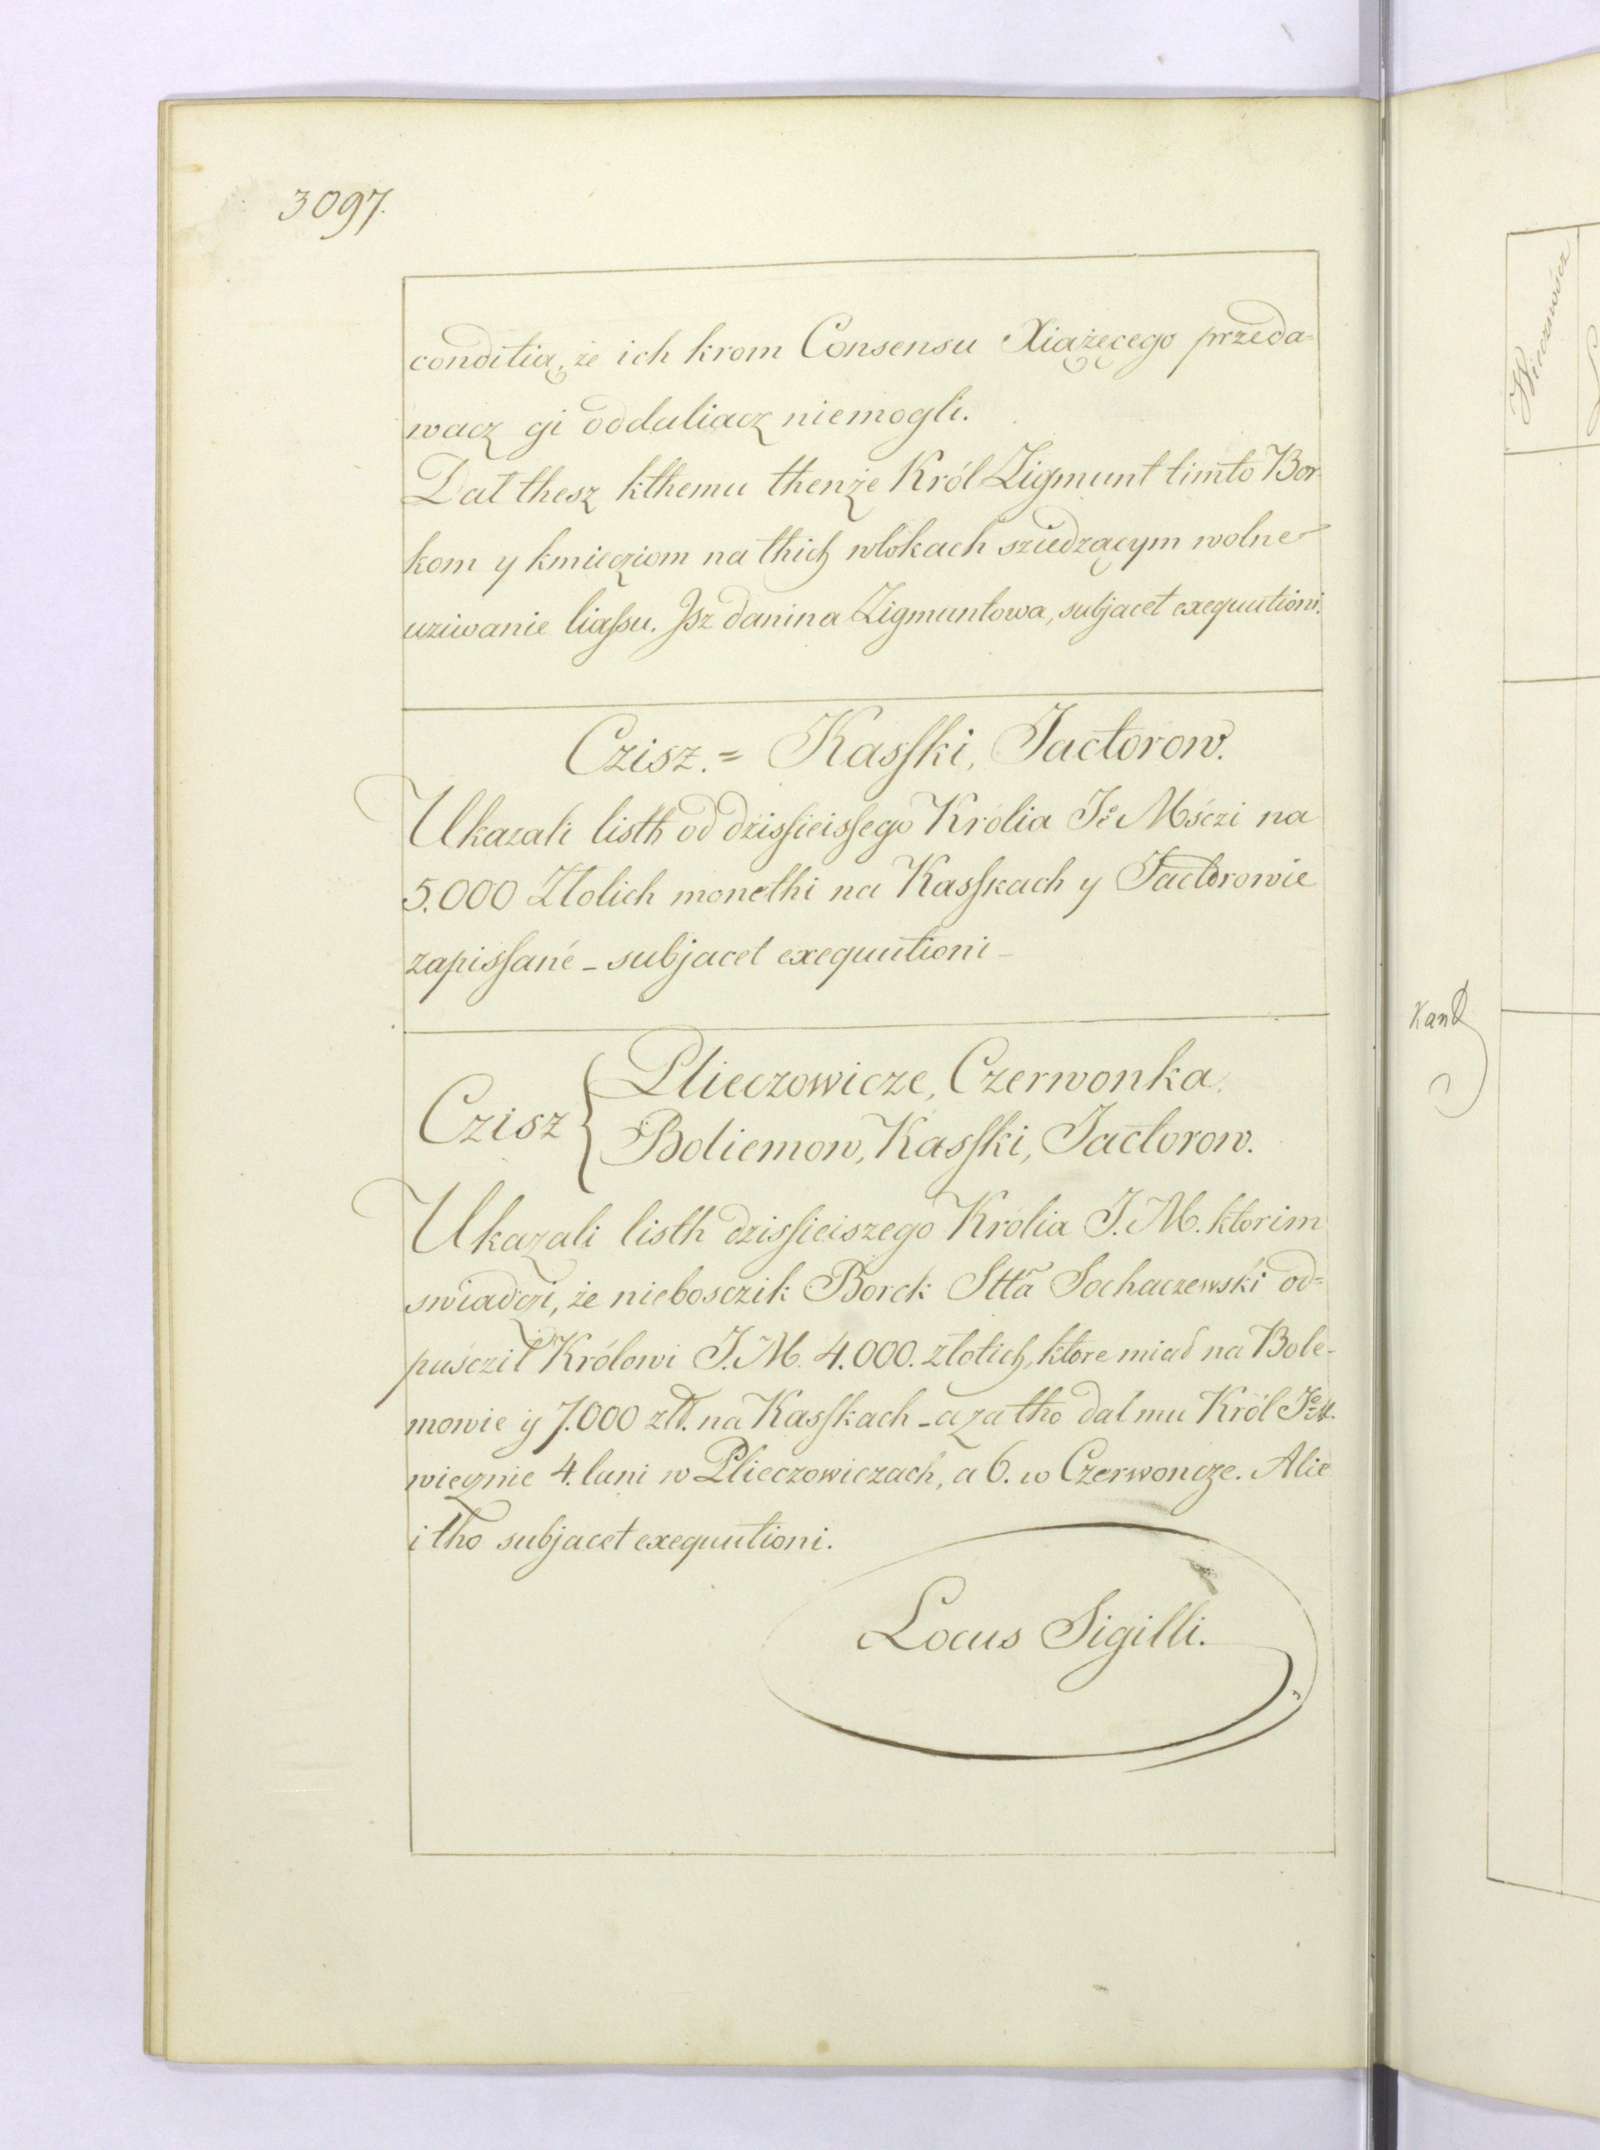 3097.
conditią, że ich krom Consensu Xiążęcego przeda=
wacz gi oddaliacz niemogli.
Dał thesz kthemu thenże Król Zigmunt timto Bor-
kom y kmieciom na thich włokach sziedzącym wolne
uziwanie liassu. Jsz danina Zigmuntowa, subjacet exequutioni.
Czisz. = Kasski, Jactorow.
Ukazali listh od dzissieissego Królia Je° Mśczi na
5.000 Złotich monethi na Kasskach y Jactorowie
zapissané – subjacet exequutioni –
Czisz { Plieczowicze, Czerwonka,
Boliemow, Kasski, Jactorow.
Ukazali listh dzissieiszego Królia J. M. ktorim
swiadczi, że niebosczik Borck Sttã Sochaczewski od=
puścził Królowi J. M. 4.000. złotich, ktore miał na Bole-
mowie ÿ 7.000 zł. na Kasskach – a za tho dał mu Król Je° M.
wiecznie 4. łani w Plieczowiczach, a 6. w Czerwoncze. Alie
i tho subjacet exequutioni.
Locus Sigilli.